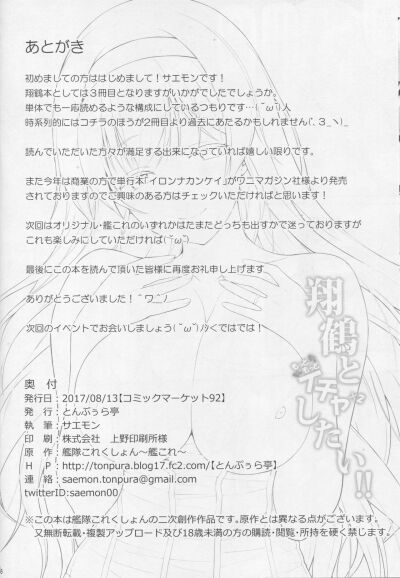 あとがき
初めましての方ははじめまして！サエモンです！
翔鶴本としては３冊目となりますがいかがでしたでしょうか。
単体でも一応読めるような構成にしているつもりです…(˘ω˘)人
時系列的にはコチラのほうが2冊目より過去にあたるかもしれません('､3_ヽ)_
読んでいただいた方々が満足する出来になっていれば嬉しい限りです。
また今年は商業の方で単行本「イロンナカンケイ」がワニマガジン社様より発売
されておりますのでご興味のある方はチェックいただければと思います！
次回はオリジナル・艦これのいずれかはたまたどっちも出すかで迷っておりますが
これも楽しみにしていただければ(˘ω˘)
最後にこの本を読んで頂いた皆様に再度お礼申し上げます。
ありがとうございました！＾ワ＾)
次回のイベントでお会いしましょう(˘ω˘)ﾉｼくではでは！
翔鶴と
イチャ2
したい!!
奥 付
発行日：2017/08/13【コミックマーケット92】
発 行：とんぷぅら亭
執 筆：サエモン
印 刷：株式会社 上野印刷所様
原 作：艦隊これくしょん～艦これ～
H P：http://tonpura.blog17.fc2.com/【とんぷぅら亭】
連 絡：saemon.tonpura@gmail.com
twitterID:saemon00
※この本は艦隊これくしょんの二次創作作品です。原作とは異なる点がございます。
又無断転載・複製アップロード及び18歳未満の方の購読・閲覧・所持を硬く禁じます。